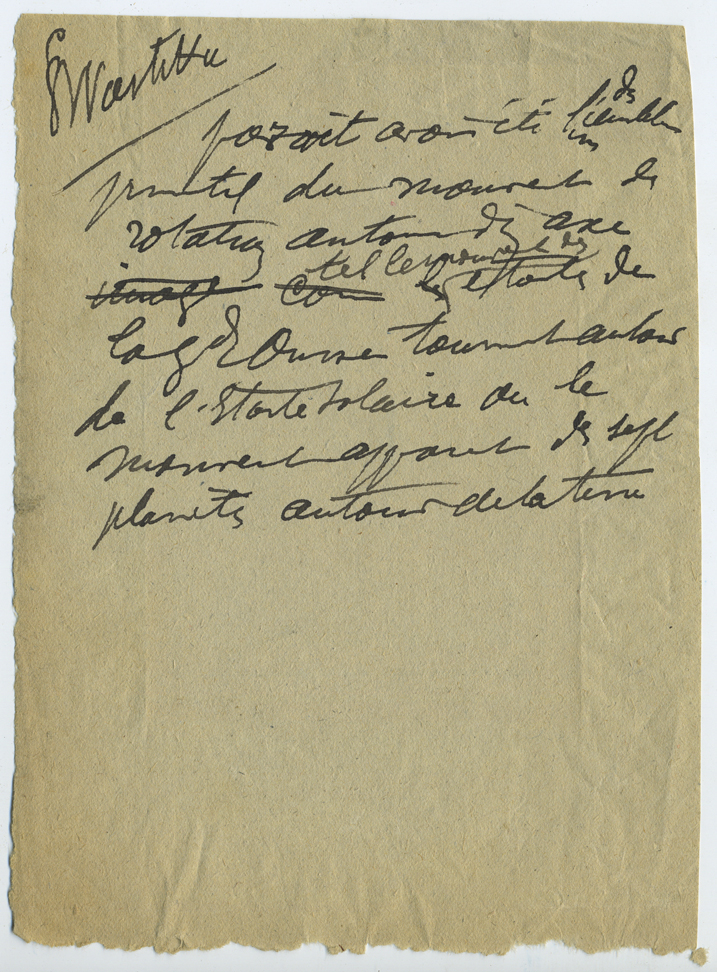 Swastika
paraît avoir été l'un des emblèmes
primitif du mouvement de
rotation autour d'un axe
image com tel le mouvement des
les étoiles de
la gde Ourse tournant autour
de l'Etoile polaire ou le
mouvement apparent des sept
planètes autour de la terre